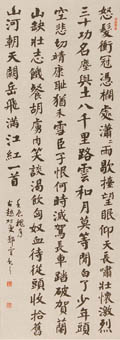 怒髮衝冠憑欄處瀟瀟雨歇擡望眼仰天長嘯壯懷激烈
三十功名塵與土八千里路雲和月莫等閒白了少年頭
空悲切靖康耻猶未雪臣子恨何時滅駕長車踏破賀蘭
山缺壯志飢餐胡虜肉笑談渴飲匈奴血待從頭收拾舊
山河朝天闕岳飛滿江紅一首